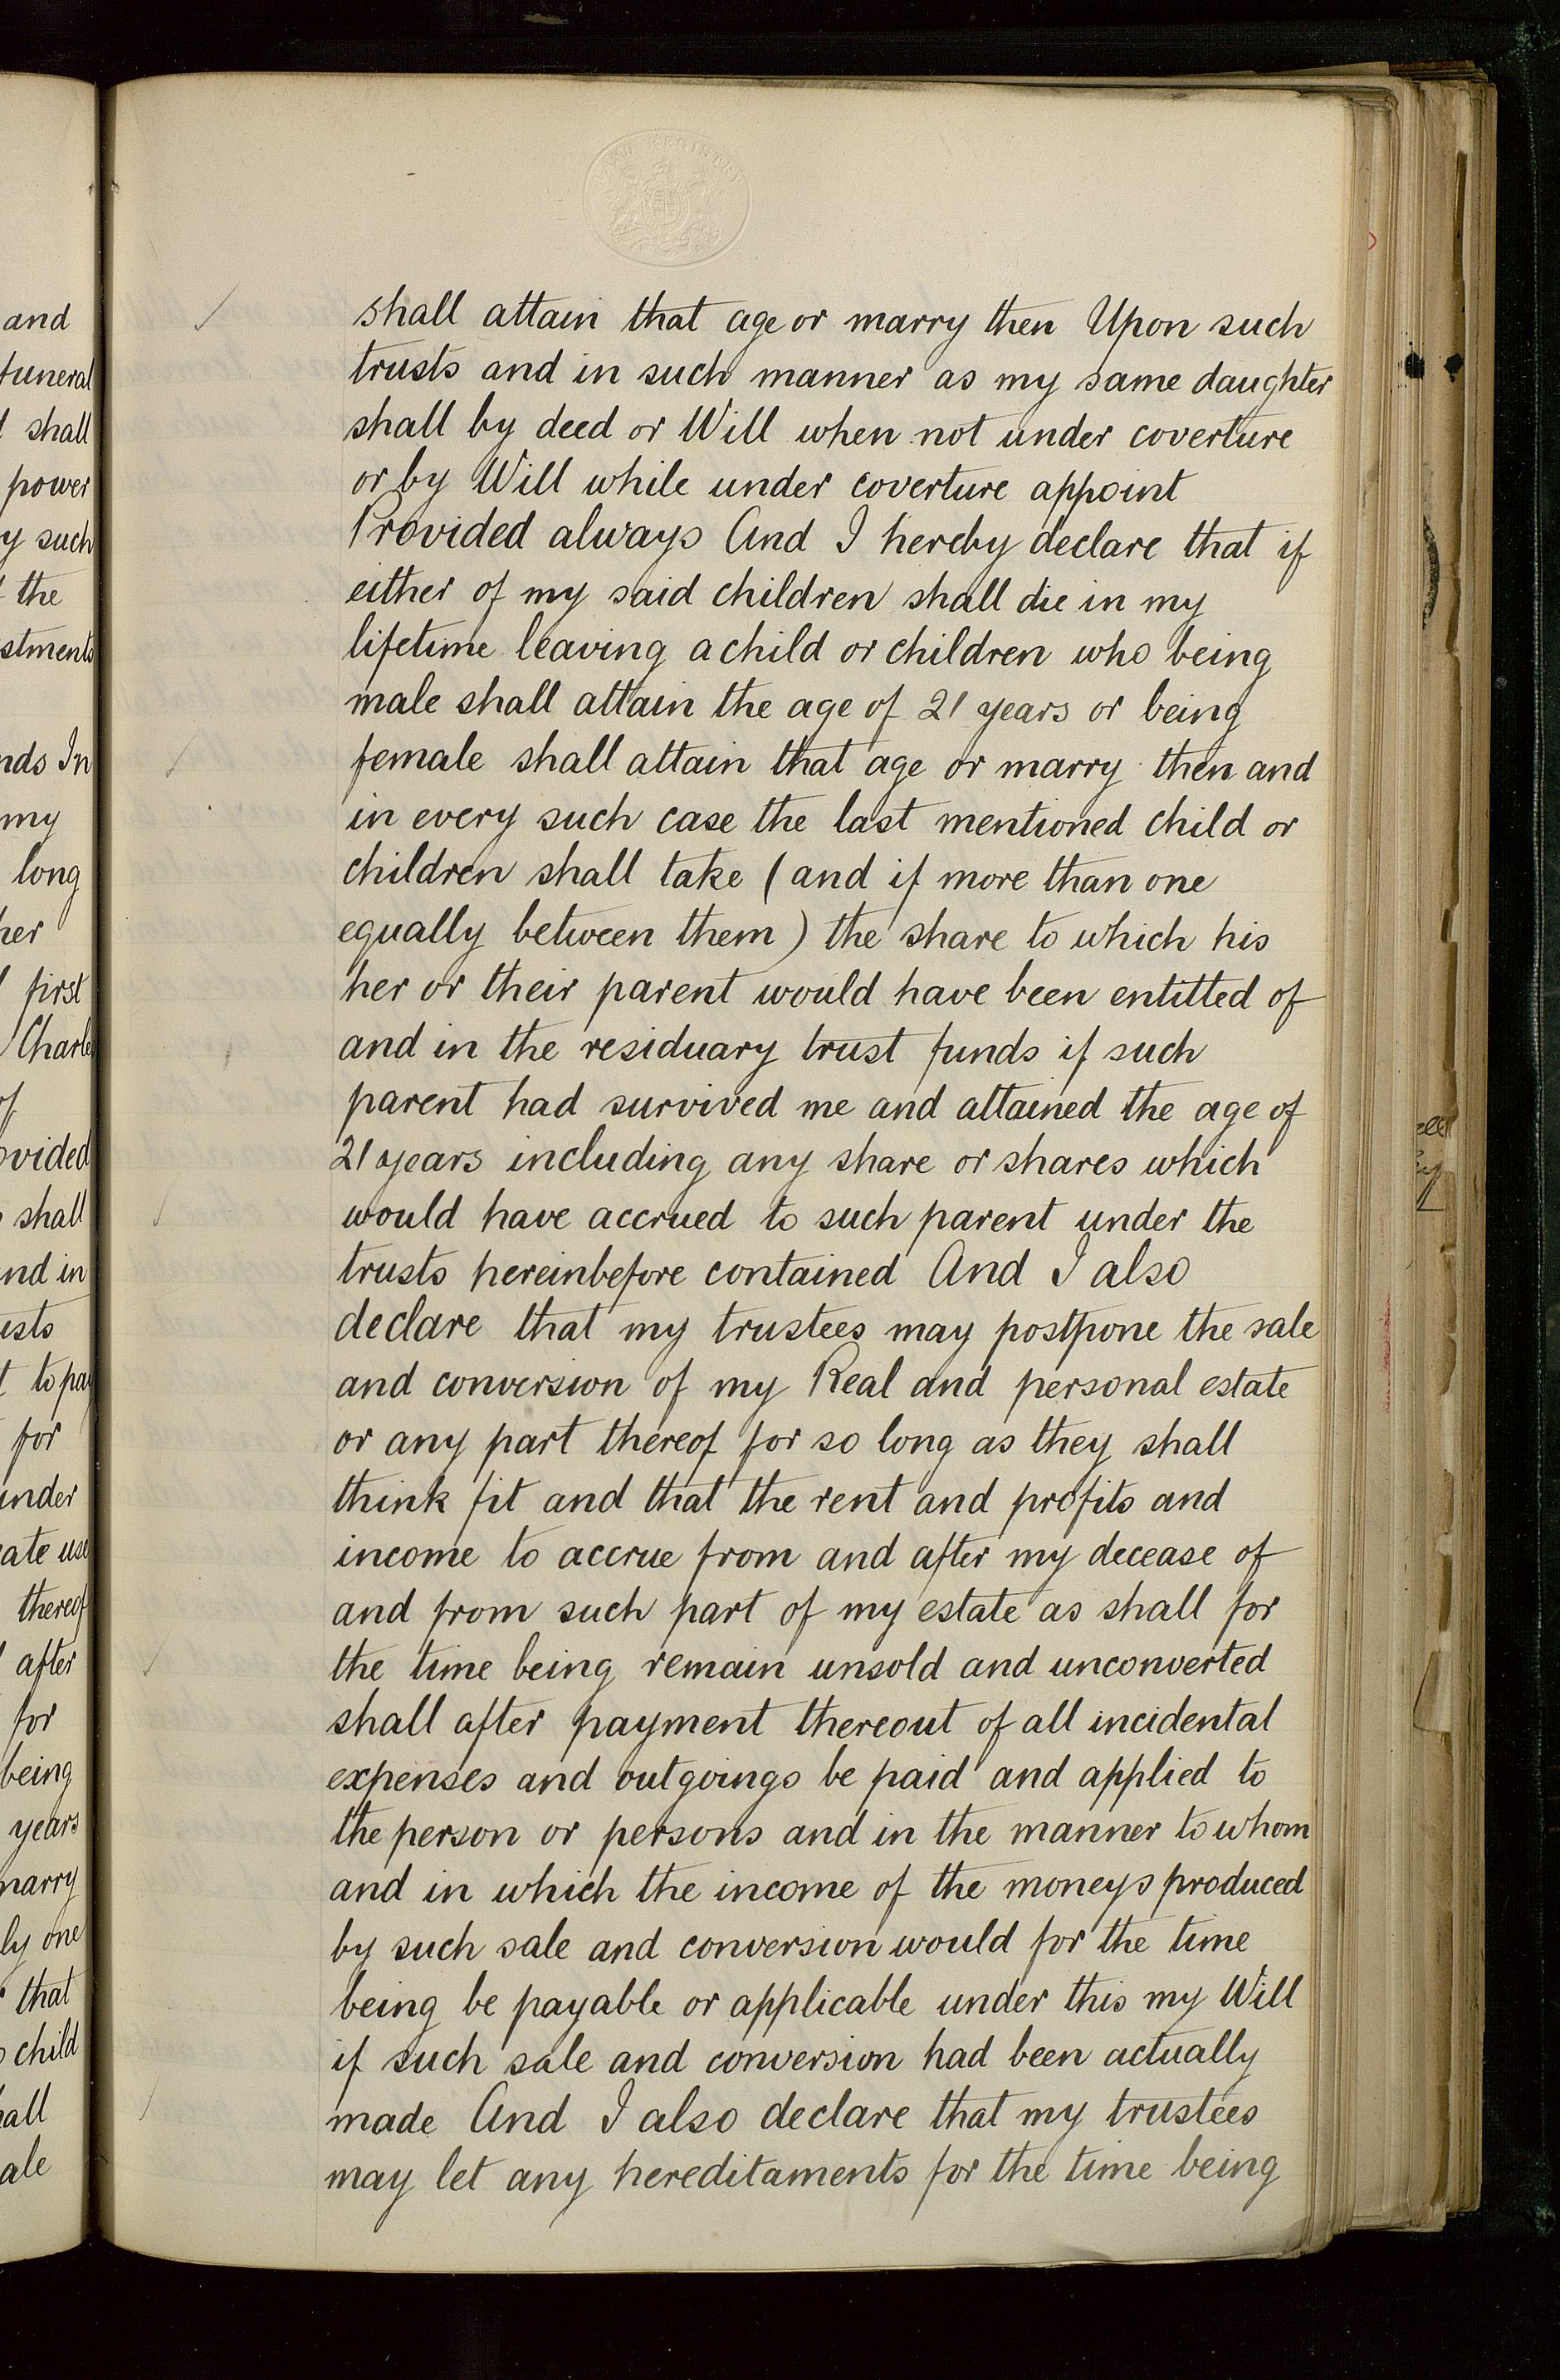 and
funeral
shall
power
such
the
In
my
long
her
first
shall
and in
to pay
for
under
use
thereof
after
for
being
years
marry
one
that
child
shall attain that age or marry then Upon such
trusts and in such manner as my same daughter
shall by deed or Will when not under coverture
or by Will while under coverture appoint
Provided always And I hereby declare that if
either of my said children shall die in my
lifetime leaving a child or children who being
male shall attain the age of 21 years or being
female shall attain that age or marry then and
in every such case the last mentioned child or
children shall take (and if more than one
equally between them) the share to which his
her or their parent would have been entitled of
and in the residuary trust funds if such
parent had survived me and attained the age of
21 years including any share or shares which
would have accrued to such parent under the
trusts hereinbefore contained And I also
declare that my trustees may postpone the sale
and conversion of my Real and personal estate
or any part thereof for so long as they shall
think fit and that the rent and profits and
income to accrue from and after my decease of
and from such part of my estate as shall for
the time being remain unsold and unconverted
shall after payment thereout of all incidental
expenses and outgoings be paid and applied to
the person or persons and in the manner to whom
and in which the income of the moneys produced
by such sale and conversion would for the time
being be payable or applicable under this my Will
if such sale and conversion had been actually
made And I also declare that my trustees
may let any hereditaments for the time being